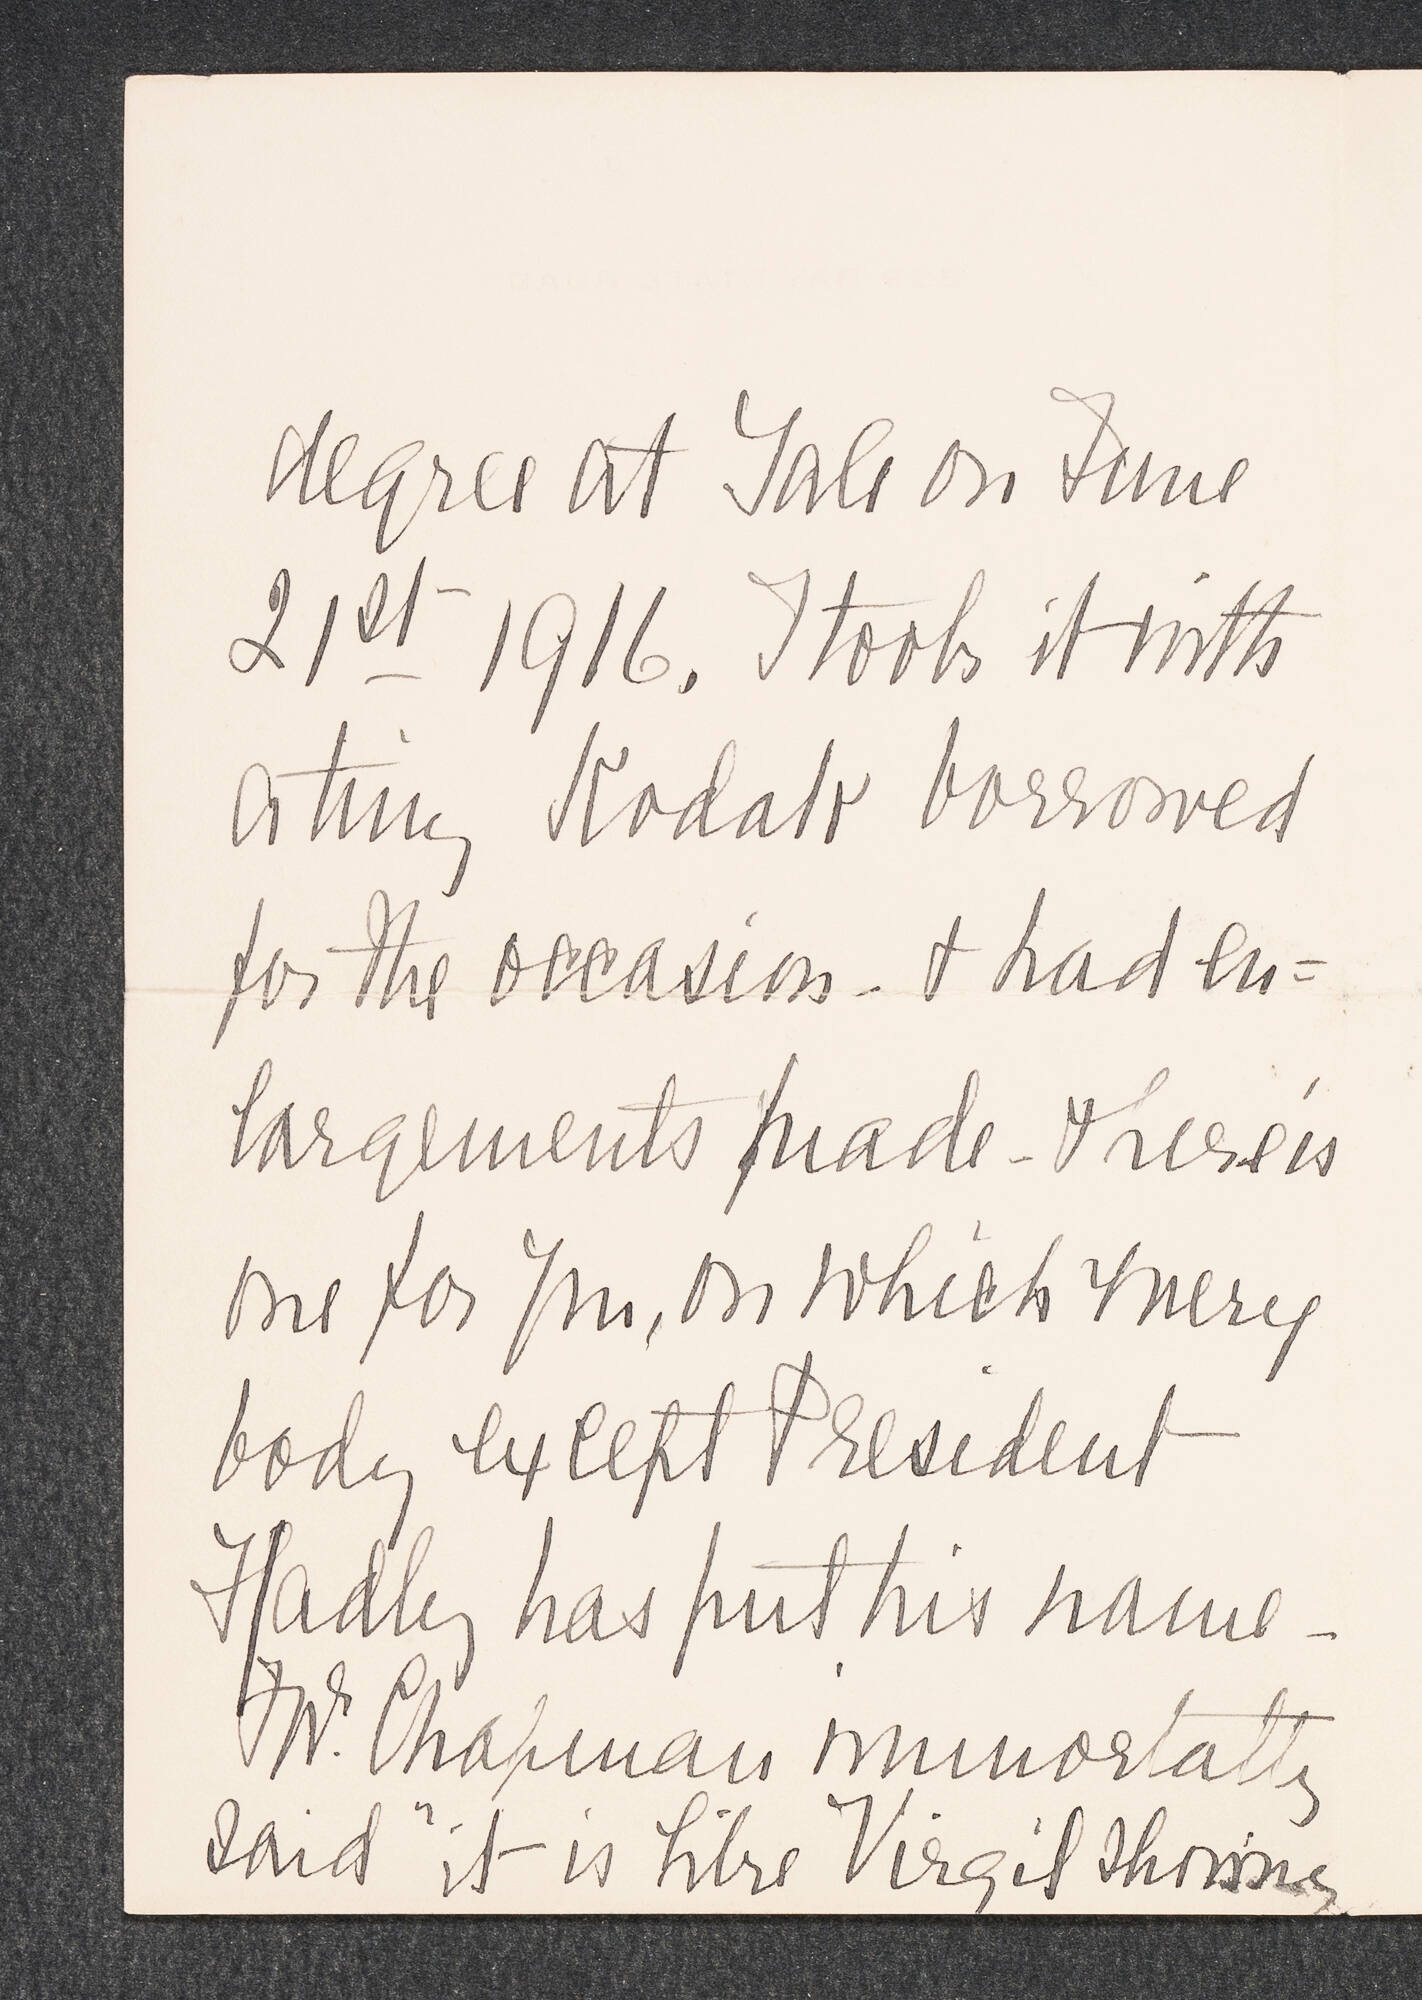 degree at Yale on June
21st 1916. I took it with
a tiny Kodak borrowed
for the occasion - & had en=
largements made - & here is
one for you, on which every
body except President
Hadley has put his name -
Mr. Chapman immortally
said "it is like Virgil showing